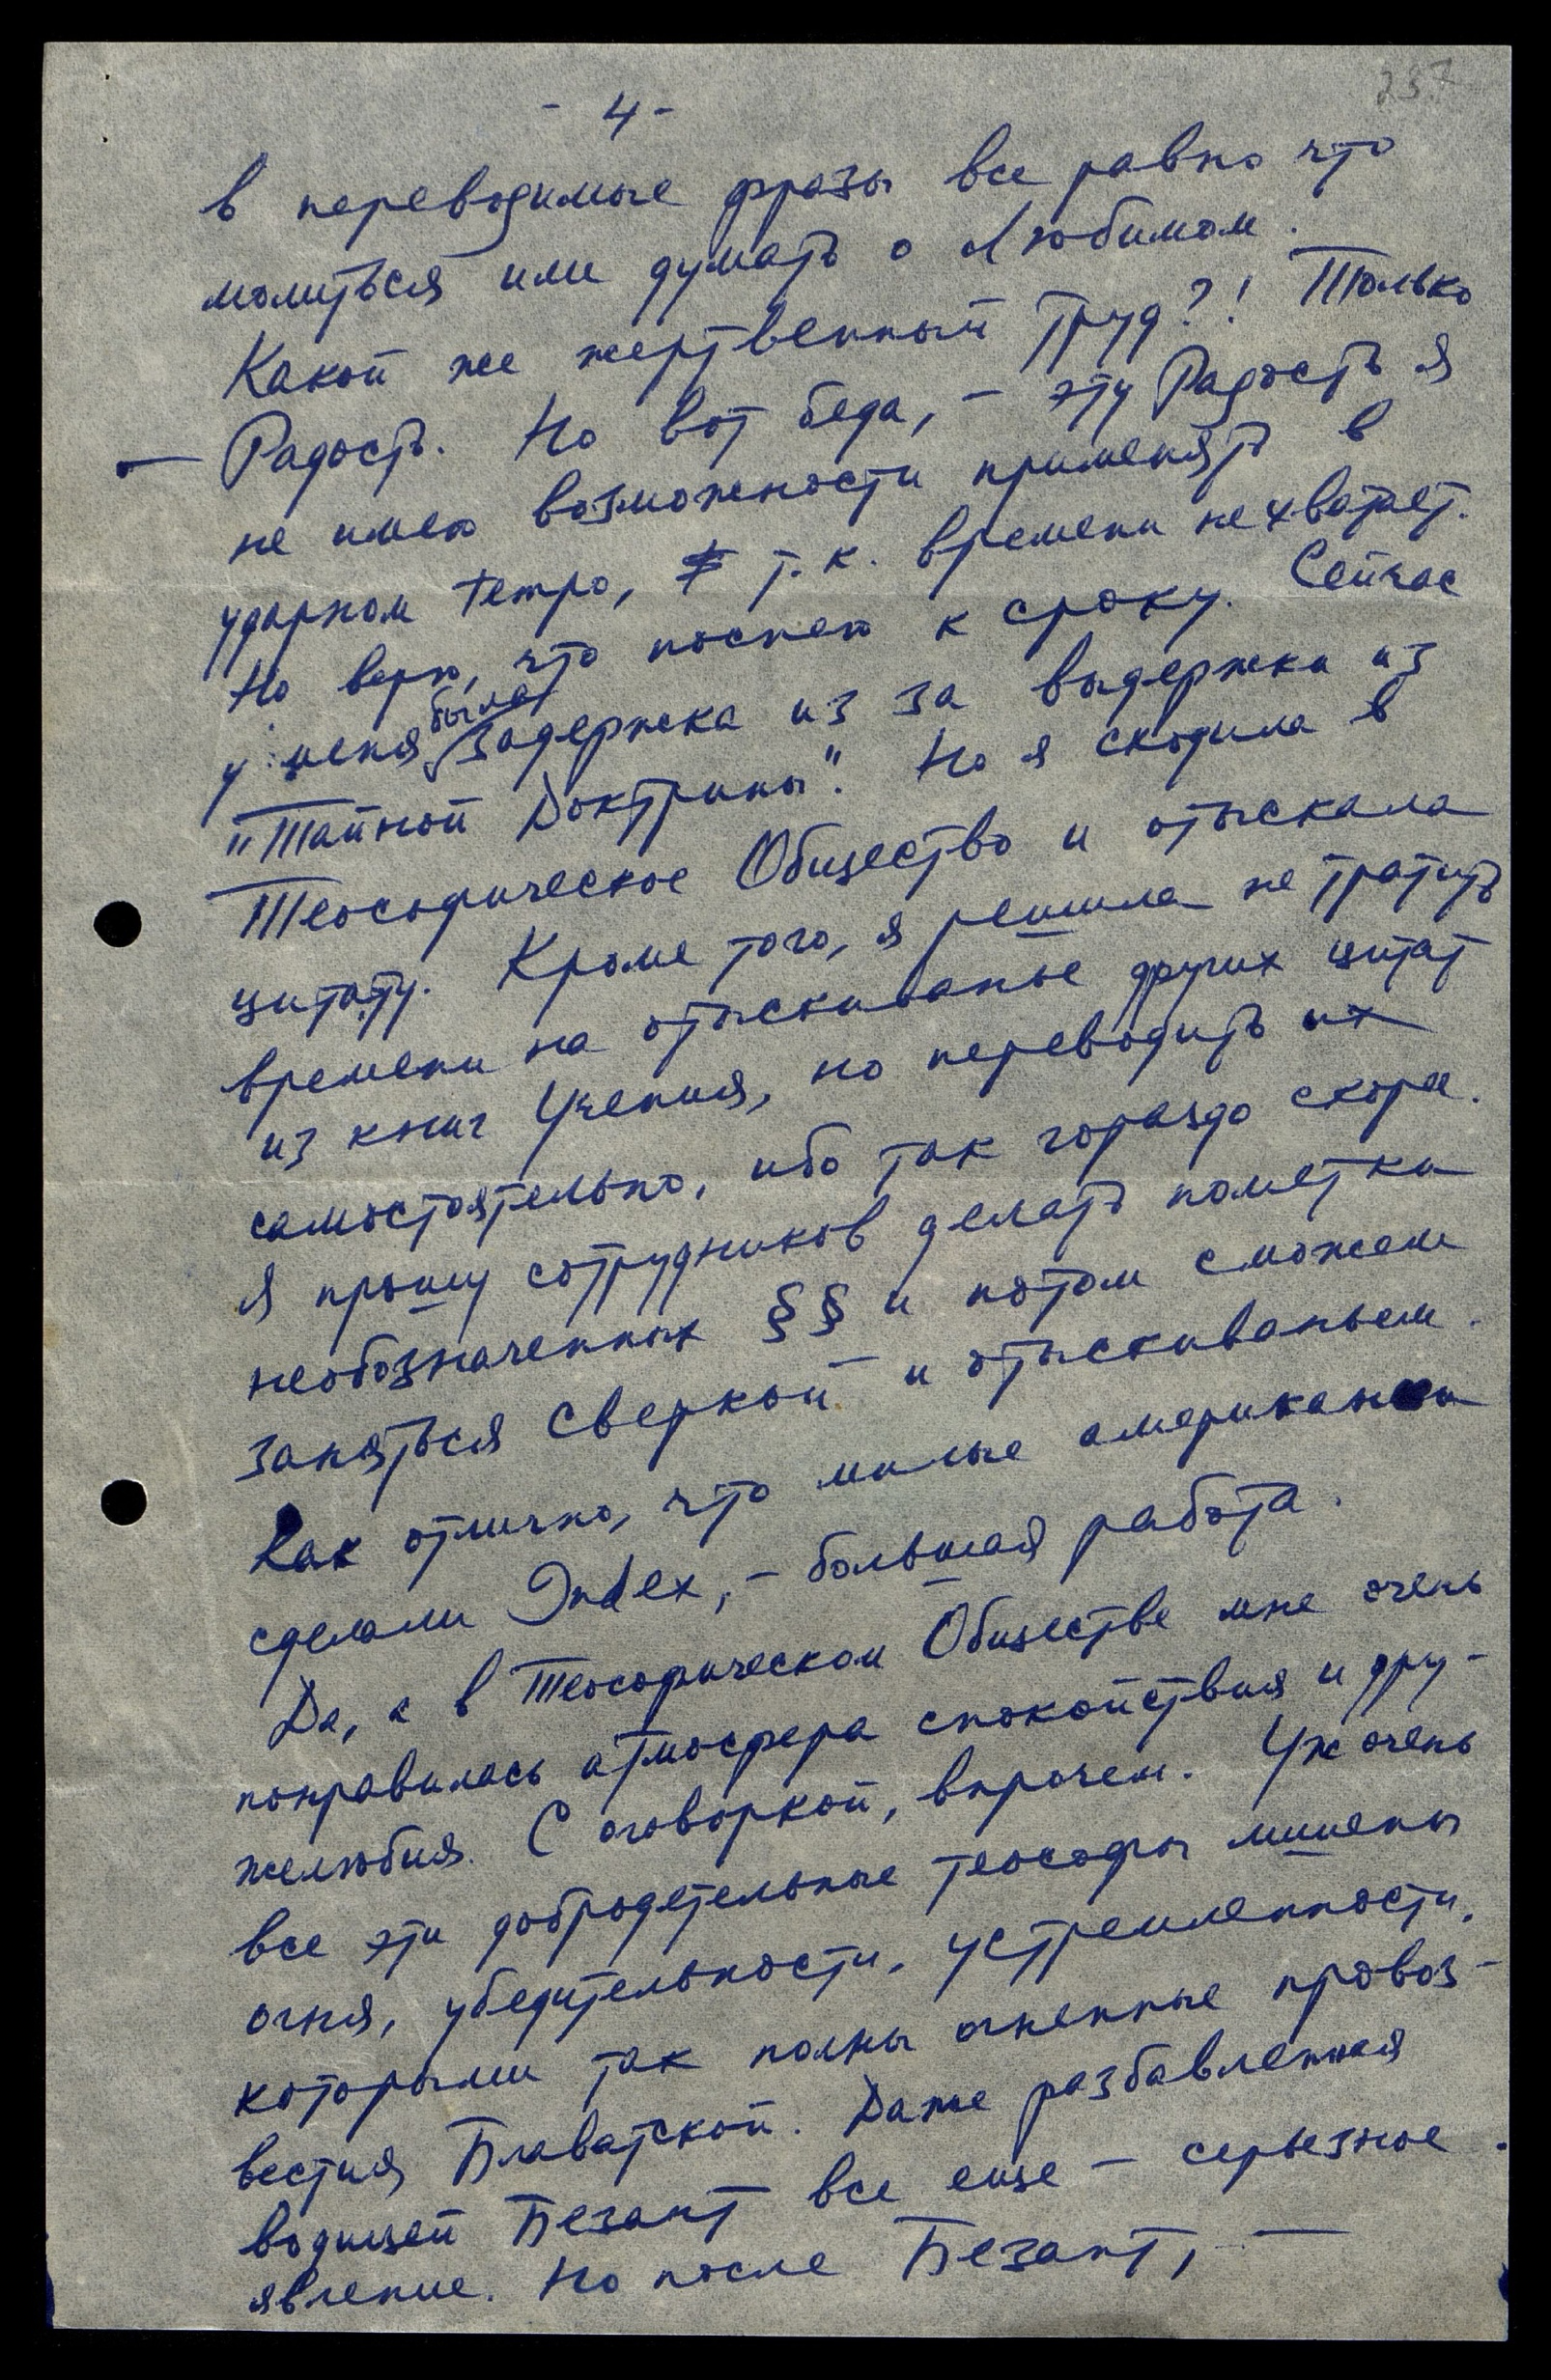 237
- 4 -
в переводимые фразы все равно что
молиться или думать о Любимом.
Какой же жертвенный труд?! Только
— Радость. Но вот беда, – эту Радость я
не имею возможности применять в
ударном темпо, т. к. времени не хватает.
Но верю, что поспею к сроку. Сейчас
у меня была задержка из за выдержки из
"Тайной Доктрины". Но я сходила в
Теософическое Общество и отыскала
цитату. Кроме того, я решила не тратить
времени на отыскиванье других цитат
из книг Учения, но переводить их
самостоятельно, ибо так гораздо скорее.
Я прошу сотрудников делать пометки
необозначенных §§ и потом сможем
заняться сверкой и отыскиваньем.
Как отлично, что милые американки
сделали Index, – большая работа.
Да, а в Теософическом Обществе мне очень
понравилась атмосфера спокойствия и дру-
желюбия. С оговоркой, впрочем. Уж очень
все эти добродетельные теософы лишены
огня, убедительности, устремленности,
которыми так полны огненные провоз-
вестия Блаватской. Даже разбавленная
водицей Безант все еще – серьезное
явление. Но после Безант, —